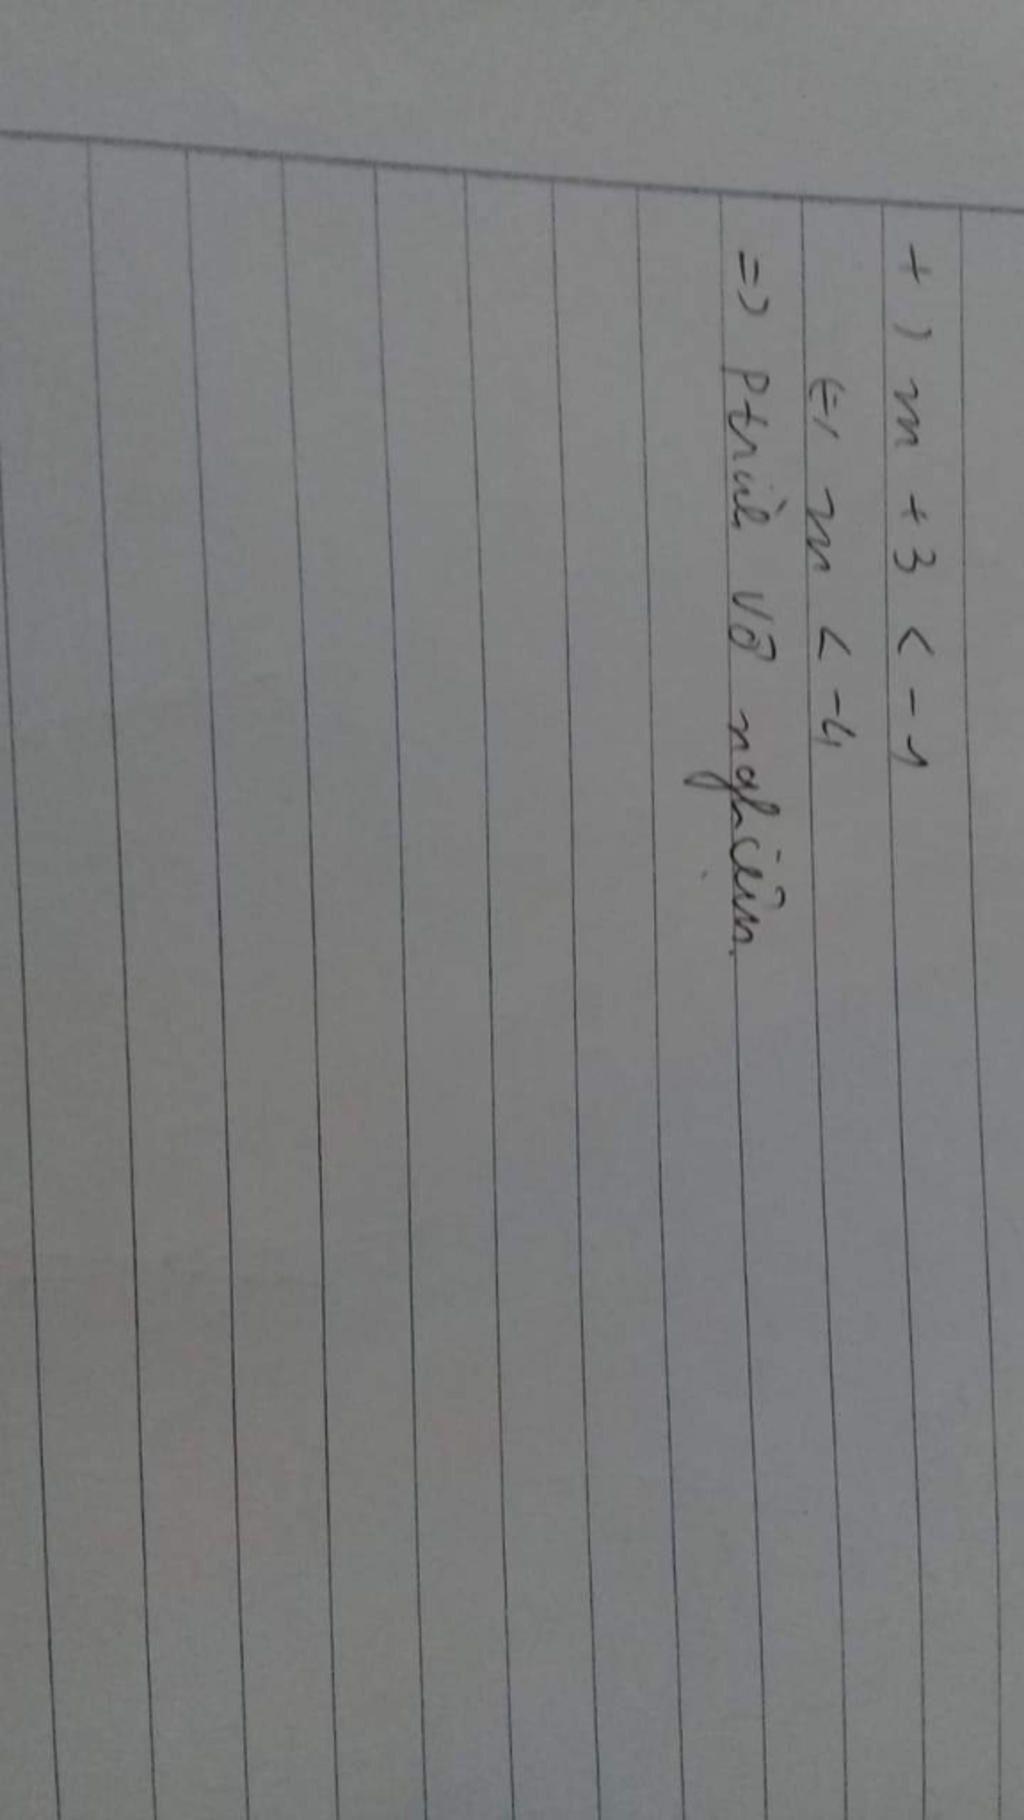 +) m + 3 < -1
(=) m < -4
=> Ptrình vô nghiệm.